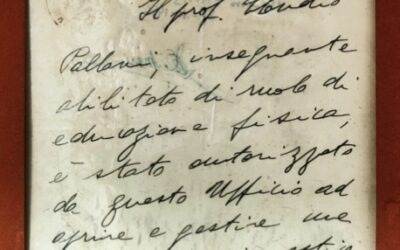 Il prof. Claudio
Pallani, insegnante
abilitato di ruolo di
educazione fisica,
è stato autorizzato
da questo Ufficio ad
aprire e gestire una